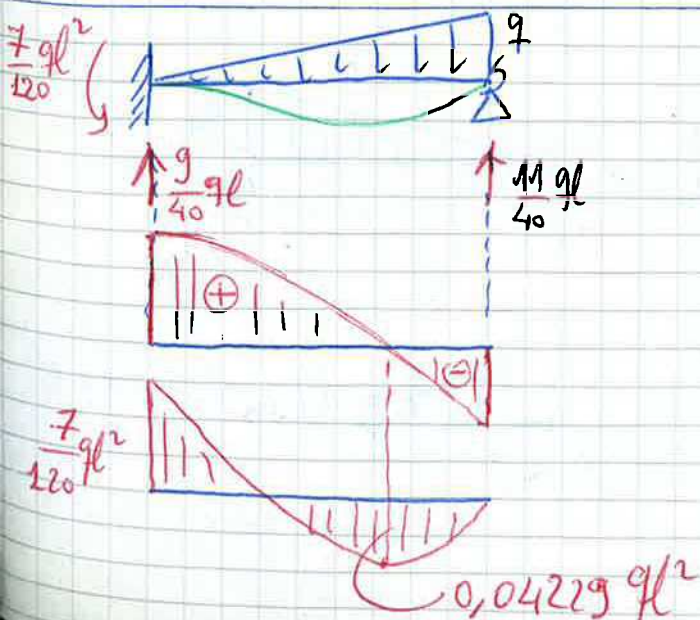 7/120 ql²
q
9/40 ql
11/40 ql
⊕
⊖
7/120 ql²
0,04229 ql²